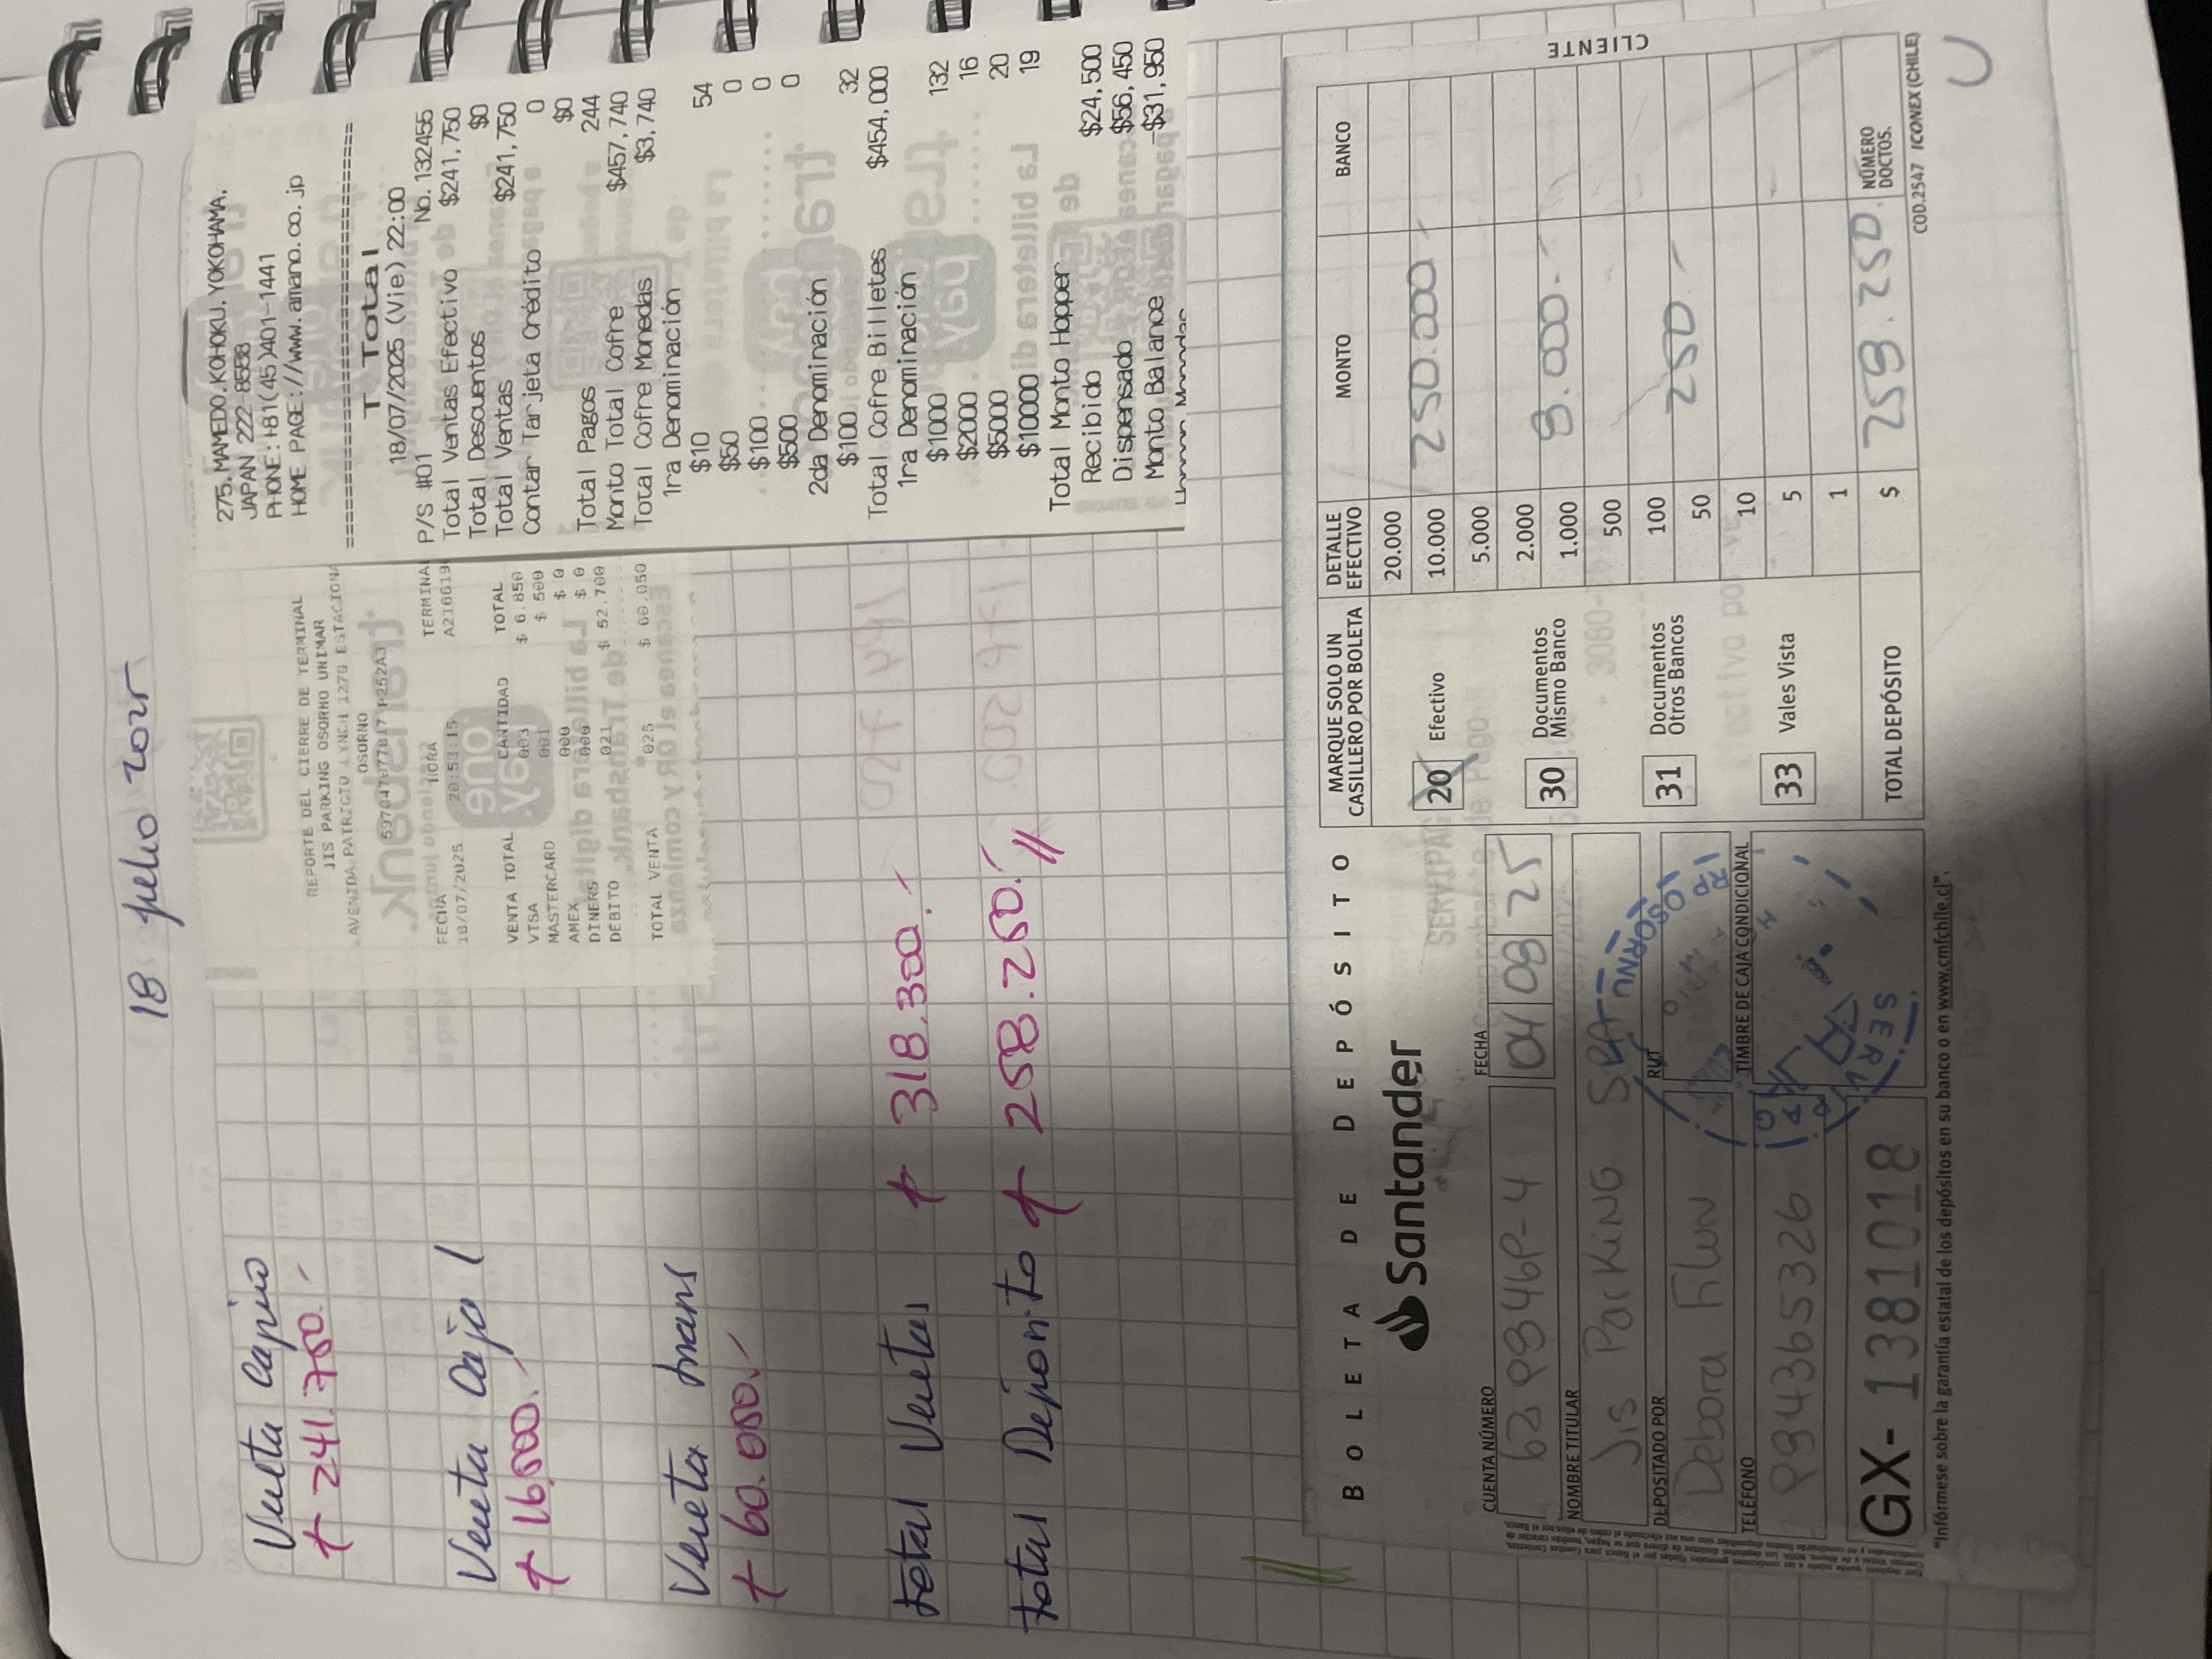 18 julio 2025
Venta Cajero
+ 241.750.-
Venta Caja 1
+ 16.500.-
Venta trans
+ 60.050.-
total Ventas + 318.300.-
total Deposito + 258.250.-
REPORTE DEL CIERRE DE TERMINAL
JIS PARKING OSORNO UNIMAR
AVENIDA PATRICIO LYNCH 1270 ESTACIONA
OSORNO
FECHA HORA TERMINAL
18/07/2025 20:53:15 A216619
VENTA TOTAL CANTIDAD TOTAL
VISA 003 $ 6.850
MASTERCARD 001 $ 500
AMEX 000 $ 0
DINERS 000 $ 0
DEBITO 021 $ 52.700
TOTAL VENTA 025 $ 60.050
275,MAMEDO,KOHOKU,YOKOHAMA,
JAPAN 222-8558
PHONE:+81(45)401-1441
HOME PAGE://www.amano.co.jp
T Total
18/07/2025 (Vie) 22:00
P/S #01 No.132455
Total Ventas Efectivo $241,750
Total Descuentos $0
Total Ventas $241,750
Contar Tarjeta Crédito 0
$0
Total Pagos 244
Monto Total Cofre $457,740
Total Cofre Monedas $3,740
1ra Denominación
$10 54
$50 0
$100 0
$500 0
2da Denominación
$100 32
Total Cofre Billetes $454,000
1ra Denominación
$1000 132
$2000 16
$5000 20
$10000 19
Total Monto Hopper
Recibido $24,500
Dispensado $56,450
Monto Balance -$31,950
BOLETA DE DEPÓSITO
Santander
CUENTA NÚMERO FECHA
04 09 25
NOMBRE TITULAR
Jis Parking SPA
DEPOSITADO POR RUT
Debora
TELÉFONO TIMBRE DE CAJA CONDICIONAL
GX- 1381018
"Infórmese sobre la garantía estatal de los depósitos en su banco o en www.cmfchile.cl".
MARQUE SOLO UN CASILLERO POR BOLETA
20 Efectivo
30 Documentos Mismo Banco
31 Documentos Otros Bancos
33 Vales Vista
TOTAL DEPÓSITO
DETALLE EFECTIVO MONTO BANCO
20.000
10.000 250.000.-
5.000
2.000
1.000 9.000.-
500
100
50 250.-
10
5
1
$ 259.250. NÚMERO DOCTOS.
CLIENTE
COD.2547 ICONEX (CHILE)